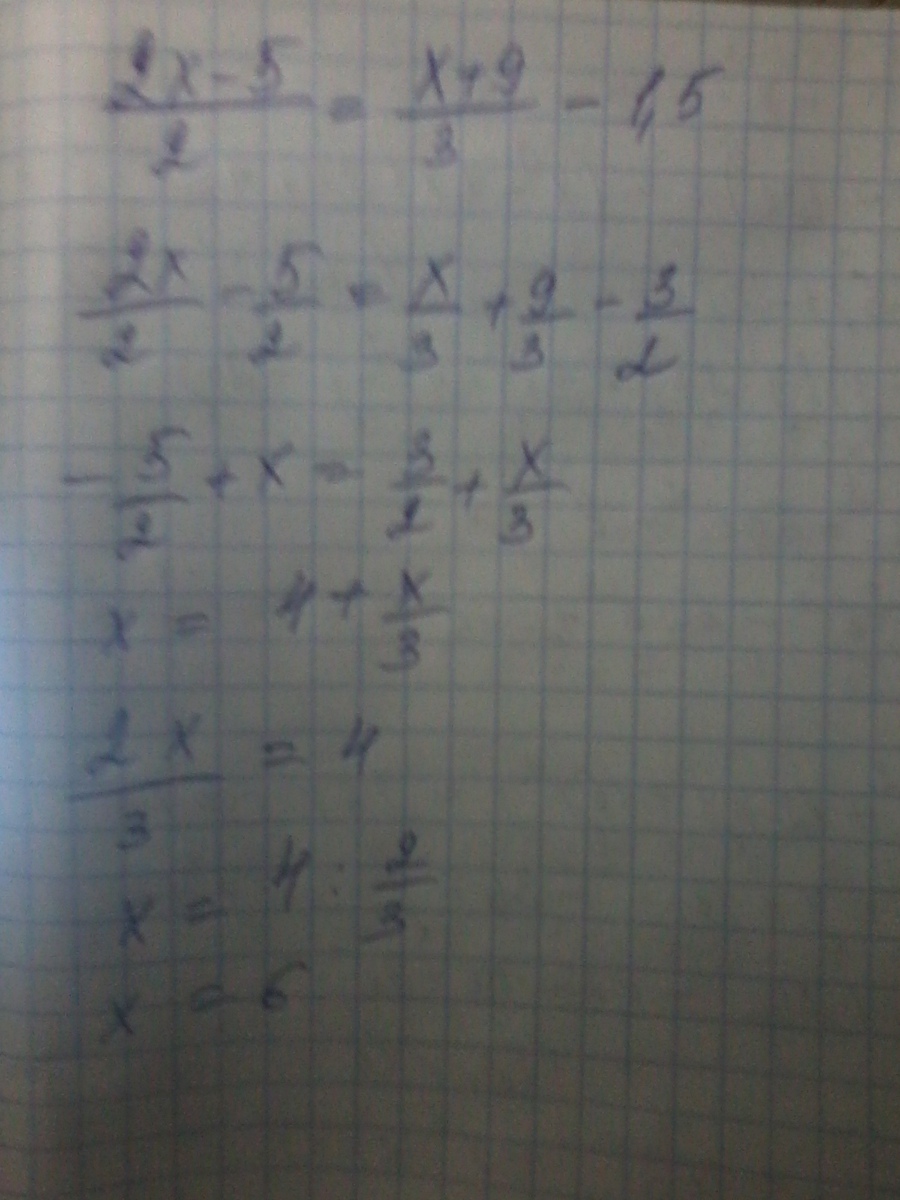 (2x-5)/2 = (x+9)/3 - 1,5
2x/2 - 5/2 = x/3 + 9/3 - 3/2
- 5/2 + x = 3/2 + x/3
x = 4 + x/3
2x/3 = 4
x = 4 : 2/3
x = 6